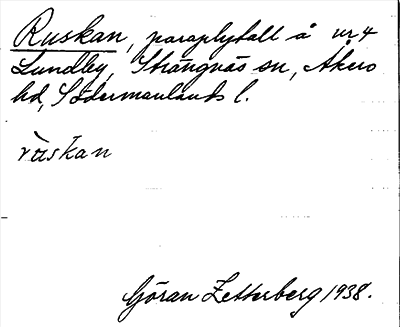 Ruskan, paraplytall å nr 4
Lundby, Strängnäs sn, Åkers
hd, Södermanlands l.
rùskan
Göran Zetterberg 1938.